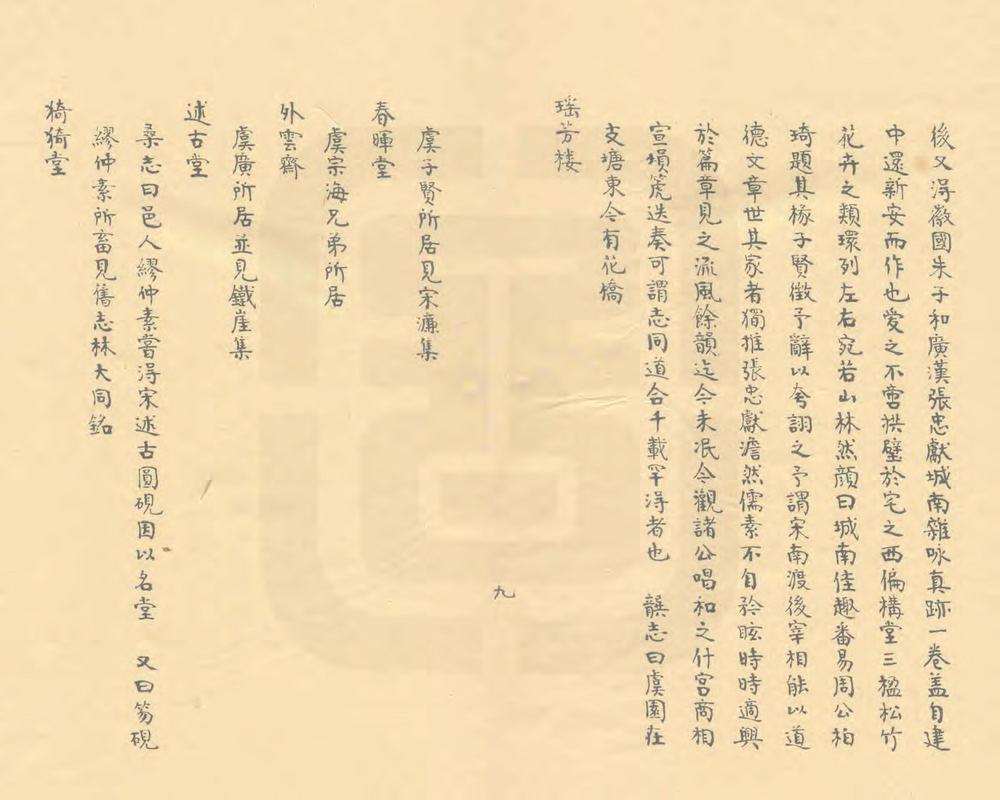 後又得徽國朱子和廣漢張忠獻城南雜咏真跡一卷盖自建
中還新安而作也愛之不啻拱璧於宅之西偏構堂三楹松竹
花卉之類環列左右宛若山林然顔曰城南佳趣番易周公伯
琦題其椽子賢徵予辭以夸詡之予謂宋南渡後宰相能以道
德文章世其家者獨推張忠獻澹然儒素不自矜眩時時適興
於篇章見之流風餘韻迄今未泯今觀諸公唱和之什宫商相
宣塤箎迭奏可謂志同道合千載罕得者也　龔志曰虞園在
支塘東今有花橋
瑶芳楼
虞子賢所居見宋濂集
春暉堂
虞宗海兄弟所居
外雲齋
虞廣所居並見鐵崖集
述古堂
桑志曰邑人繆仲素嘗得宋述古圓硯因以名堂　又曰笏硯
繆仲素所畜見舊志林大同銘
猗猗堂
九